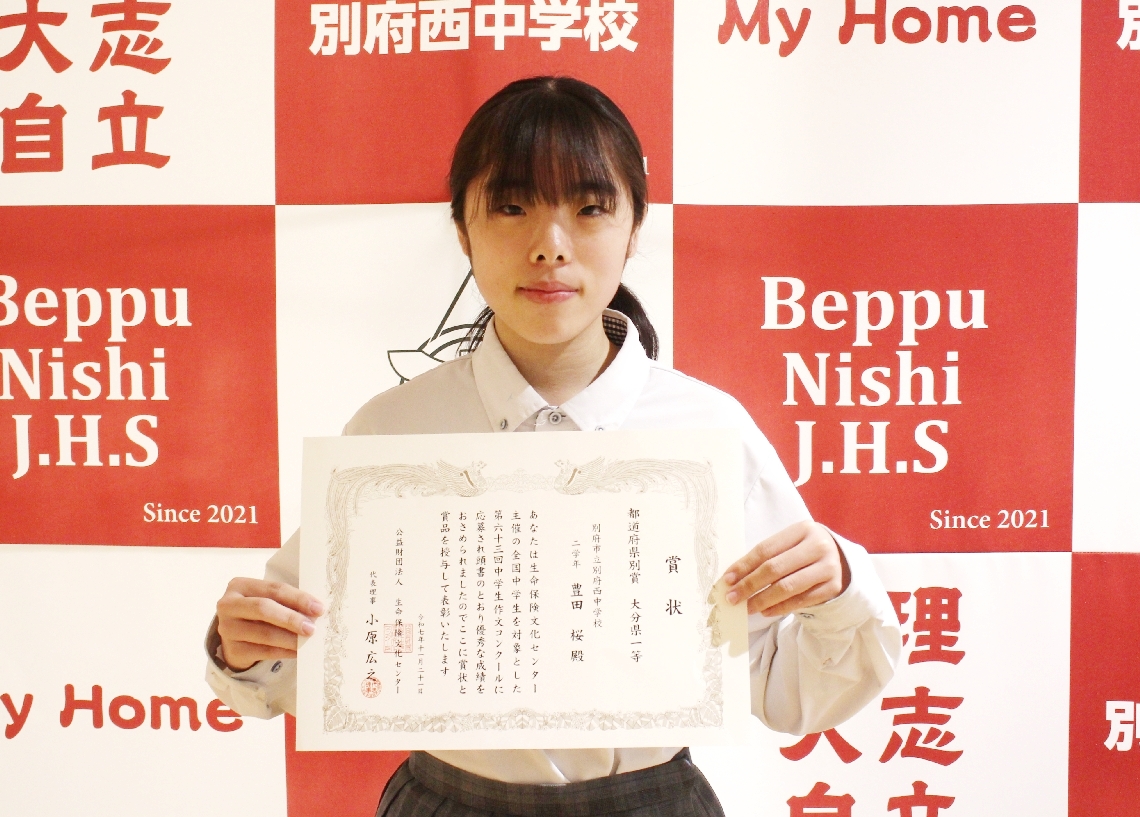 大志
自立
別府西中学校
My Home
別
Beppu
Nishi
J.H.S
Since 2021
Beppu
Nishi
J.H.S
Since 2021
賞状
都道府県別賞 大分県一等
別府市立別府西中学校
二学年 豊田 桜 殿
あなたは生命保険文化センター
主催の全国中学生を対象とした
第六十三回中学生作文コンクールに
応募され頭書のとおり優秀な成績を
おさめられましたのでここに賞状と
賞品を授与して表彰いたします
令和七年十一月二十一日
公益財団法人 生命保険文化センター
代表理事 小原広之
y Home
理
大志
自立
別